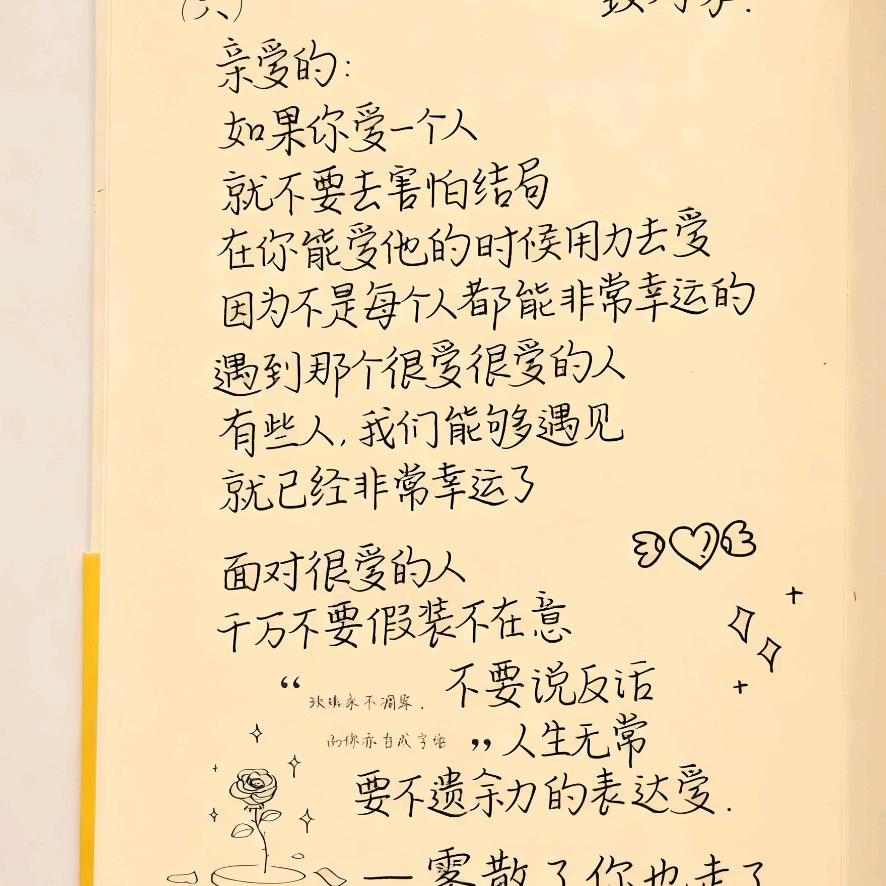 （六）
亲爱的：
如果你爱一个人
就不要去害怕结局
在你能爱他的时候用力去爱
因为不是每个人都能非常幸运的
遇到那个很爱很爱的人
有些人，我们能够遇见
就已经非常幸运了
面对很爱的人
千万不要假装不在意
不要说反话
“玫瑰永不凋零.
而你亦自成宇宙”
人生无常
要不遗余力的表达爱.
——零散了你也走了